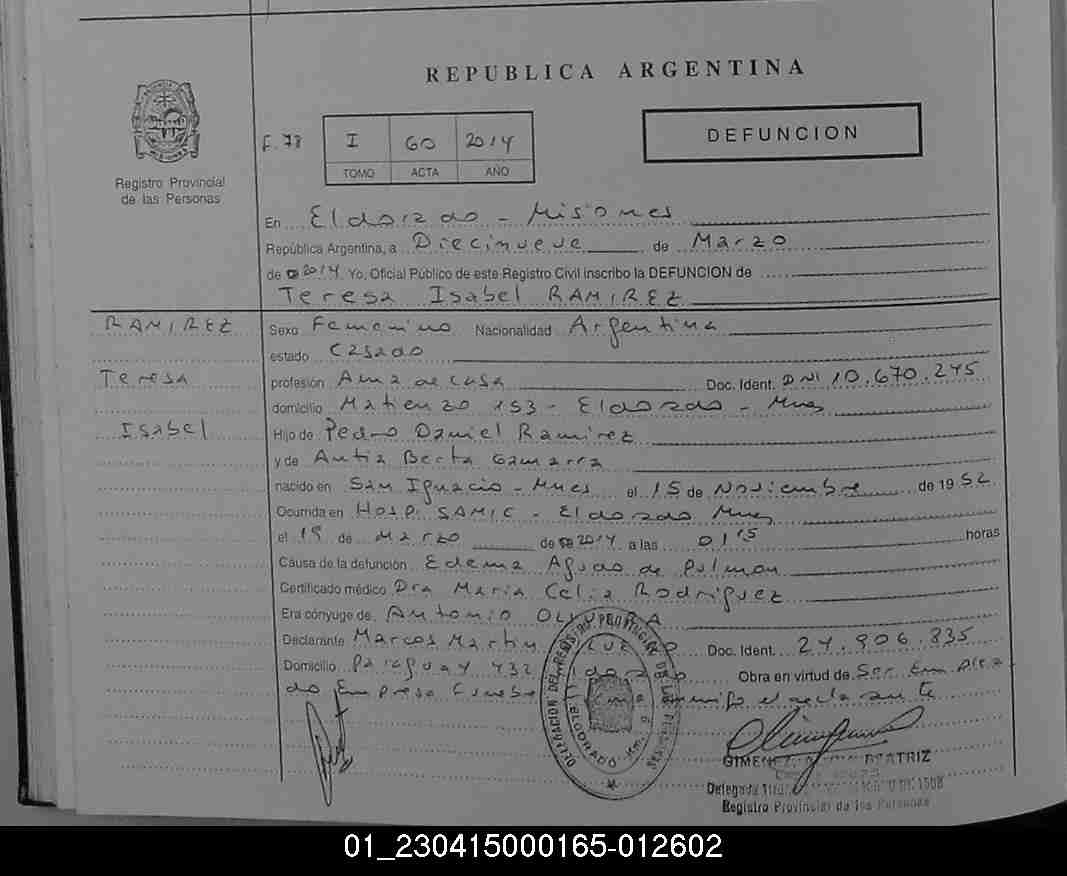 REPUBLICA ARGENTINA
Registro Provincial
de las Personas
F. 78
I 60 2014
TOMO ACTA AÑO
DEFUNCION
En Eldorado - Misiones
República Argentina, a Diecinueve de Marzo
de 2014 Yo, Oficial Público de este Registro Civil inscribo la DEFUNCION de
Teresa Isabel RAMIREZ
RAMIREZ
Teresa
Isabel
Sexo Femenino Nacionalidad Argentina
estado Casado
profesión Ama de casa Doc. Ident. DNI 10.670.245
domicilio Matienzo 153 - Eldorado - Mnes
Hijo de Pedro Daniel Ramirez
y de Antia Berta Gamarra
nacido en San Ignacio - Mnes el 15 de Noviembre de 1952
Ocurrida en Hosp. SAMIC - Eldorado Mnes
el 19 de Marzo de 2014 a las 01 15 horas
Causa de la defunción Edema Agudo de Pulmon
Certificado médico Dra Maria Celia Rodriguez
Era cónyuge de Antonio
Declarante Marcos Martin Doc. Ident. 24.906.835
Domicilio Paraguay 432 Obra en virtud de Ser Emplea
do Empresa Funebre el acta ante
DELEGACION DEL REGISTRO PROVINCIAL DE LAS PERSONAS
ELDORADO Km.
GIMENEZ BEATRIZ
Delegada Titular
Registro Provincial de las Personas
01_230415000165-012602